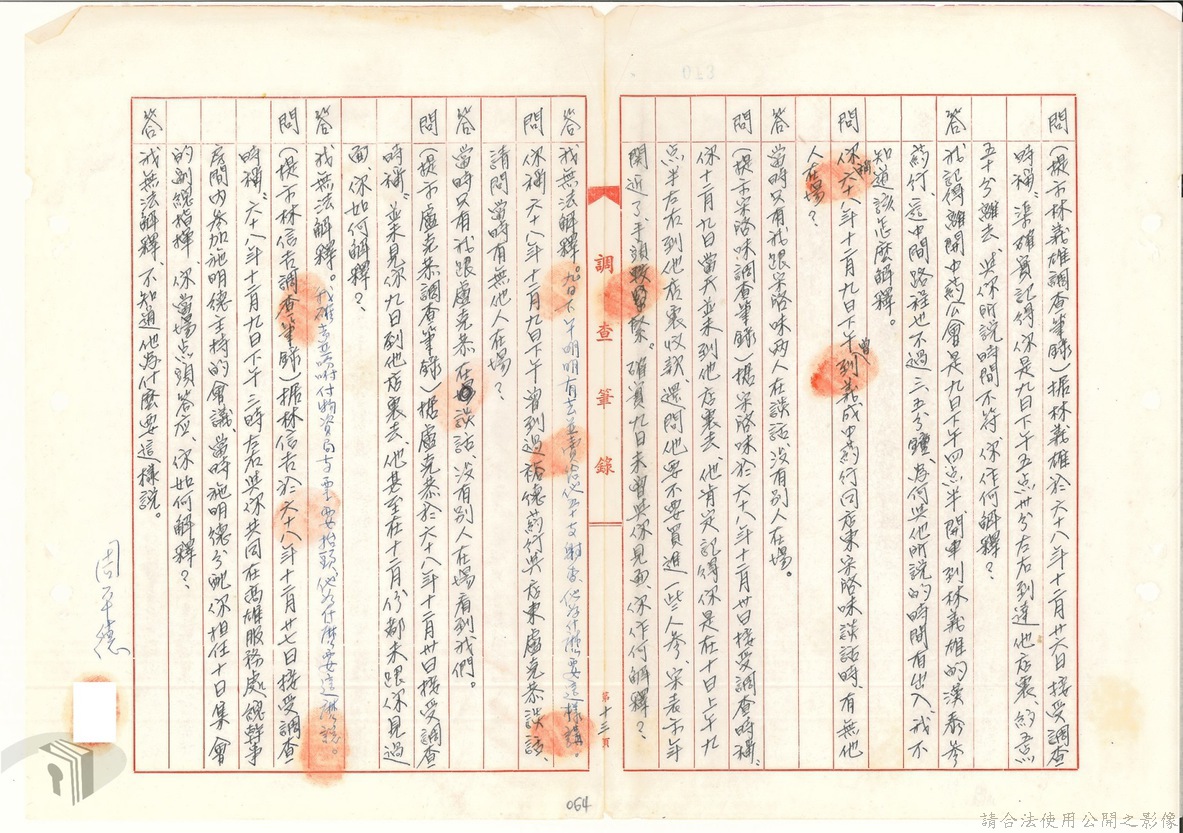 問(提示林義雄調查筆錄)据林義雄於六十八年十二月廿六日接受調查
時稱、渠確實記得你是九日下午五点卅分左右到達他店裏、約五点
五十分離去、與你所說時間不符、你作何解釋?
答 我記得離開中葯公會是九日下午四点半開車到林義雄的漢秀參
葯行、這中間路程也不過三、五分鐘、為何與他所說的時間有出入、我不
知道該怎麼解釋。
問 你稱六十八年十二月九日下午曾到義成中葯行同店東宋啓味談話時、有無他
人在場?
答 當時只有我跟宋啓味两人在談話、沒有別人在場。
問(提示宋啓味調查筆錄)据宋啓味於六十八年十二月卅日接受調查時稱、
你十二月九日當天並未到他店裏去、他肯定記得你是在十日上午九
点半左右到他店裏收款、還問他要不要買進一些人參、宋表示年
関近了、手頭緊。確實九日未曾與你見面、你作何解釋?
調查筆錄
第十三頁
答 我無法解釋。九日下午明明有去並賣他五十支射香、他為什麼要這樣講。
問 你稱六十八年十二月九日下午曾到過裕德葯行與店東盧克恭談話、
請問當時有無他人在場?
答 當時只有我跟盧克恭在談話、沒有別人在場看到我們。
問(提示盧克恭調查筆錄)据盧克恭於六十八年十二月卅日接受調查
時稱、並未見你九日到他店裏去、他甚至在十二月份都未跟你見過
面、你如何解釋?
答 我無法解釋、我確去並吩付物資局支票要抬頭、他為什麼要這講說。
問(提示林信吉調查筆錄)据林信吉於六十八年十二月廿七日接受調查
時稱、六十八年十二月九日下午三時左右與你共同在高雄服務處總幹事
房間內參加施明德主持的會議、當時施明德分配你担任十日集會
的副總指揮、你當場点頭答应、你如何解釋?
答 我無法解釋、不知道他為什麼要這樣說。
周平德
064
請合法使用公開之影像